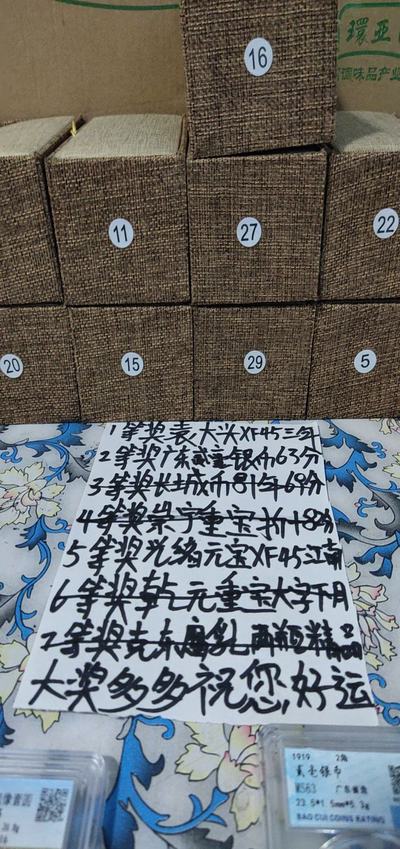 環亚
调味品产业
16
11
27
22
20
15
29
5
1等奖袁大头XF45三年
2等奖广东宣宝银币63分
3等奖长城币81年69分
4等奖崇宁重宝折十82分
5等奖光绪元宝XF45江南
6等奖乾元重宝大字下月
7等奖克东腐乳两瓶精品
大奖多多祝您好运
1919 2角
贰毫银币
MS63 广东省造
23.5*1.5mm*5.3g
BAO CUI COINS RATING